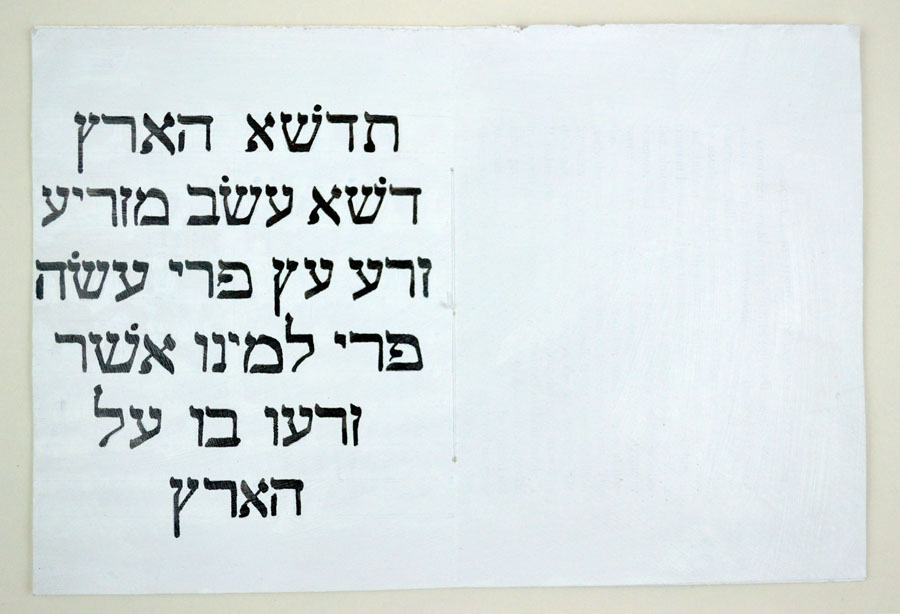 תדשׁא הארץ
דשׁא עשׂב מזריע
זרע עץ פרי עשׂה
פרי למינו אשׁר
זרעו בו על
הארץ